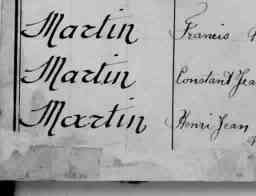 Martin Francis
Martin Constant Jea
Martin Henri Jean